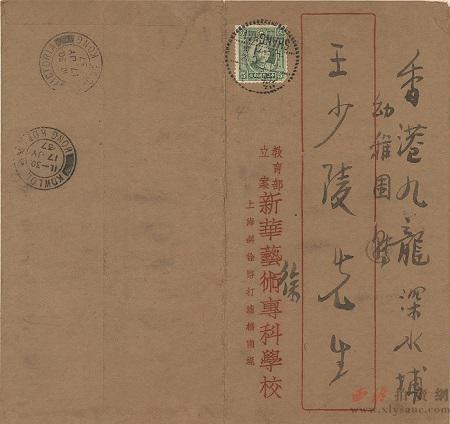 香港九龍深水埔
幼稚園
王少陵先生
徐
教育部
立案
新華藝術專科學校
上海斜徐路打浦橋南堍
VICTORIA
HONG KONG
KOWLOON
11-30
17 JY
37
HONG KONG
SHANGHAI
西泠拍賣網
www.xlysauc.com